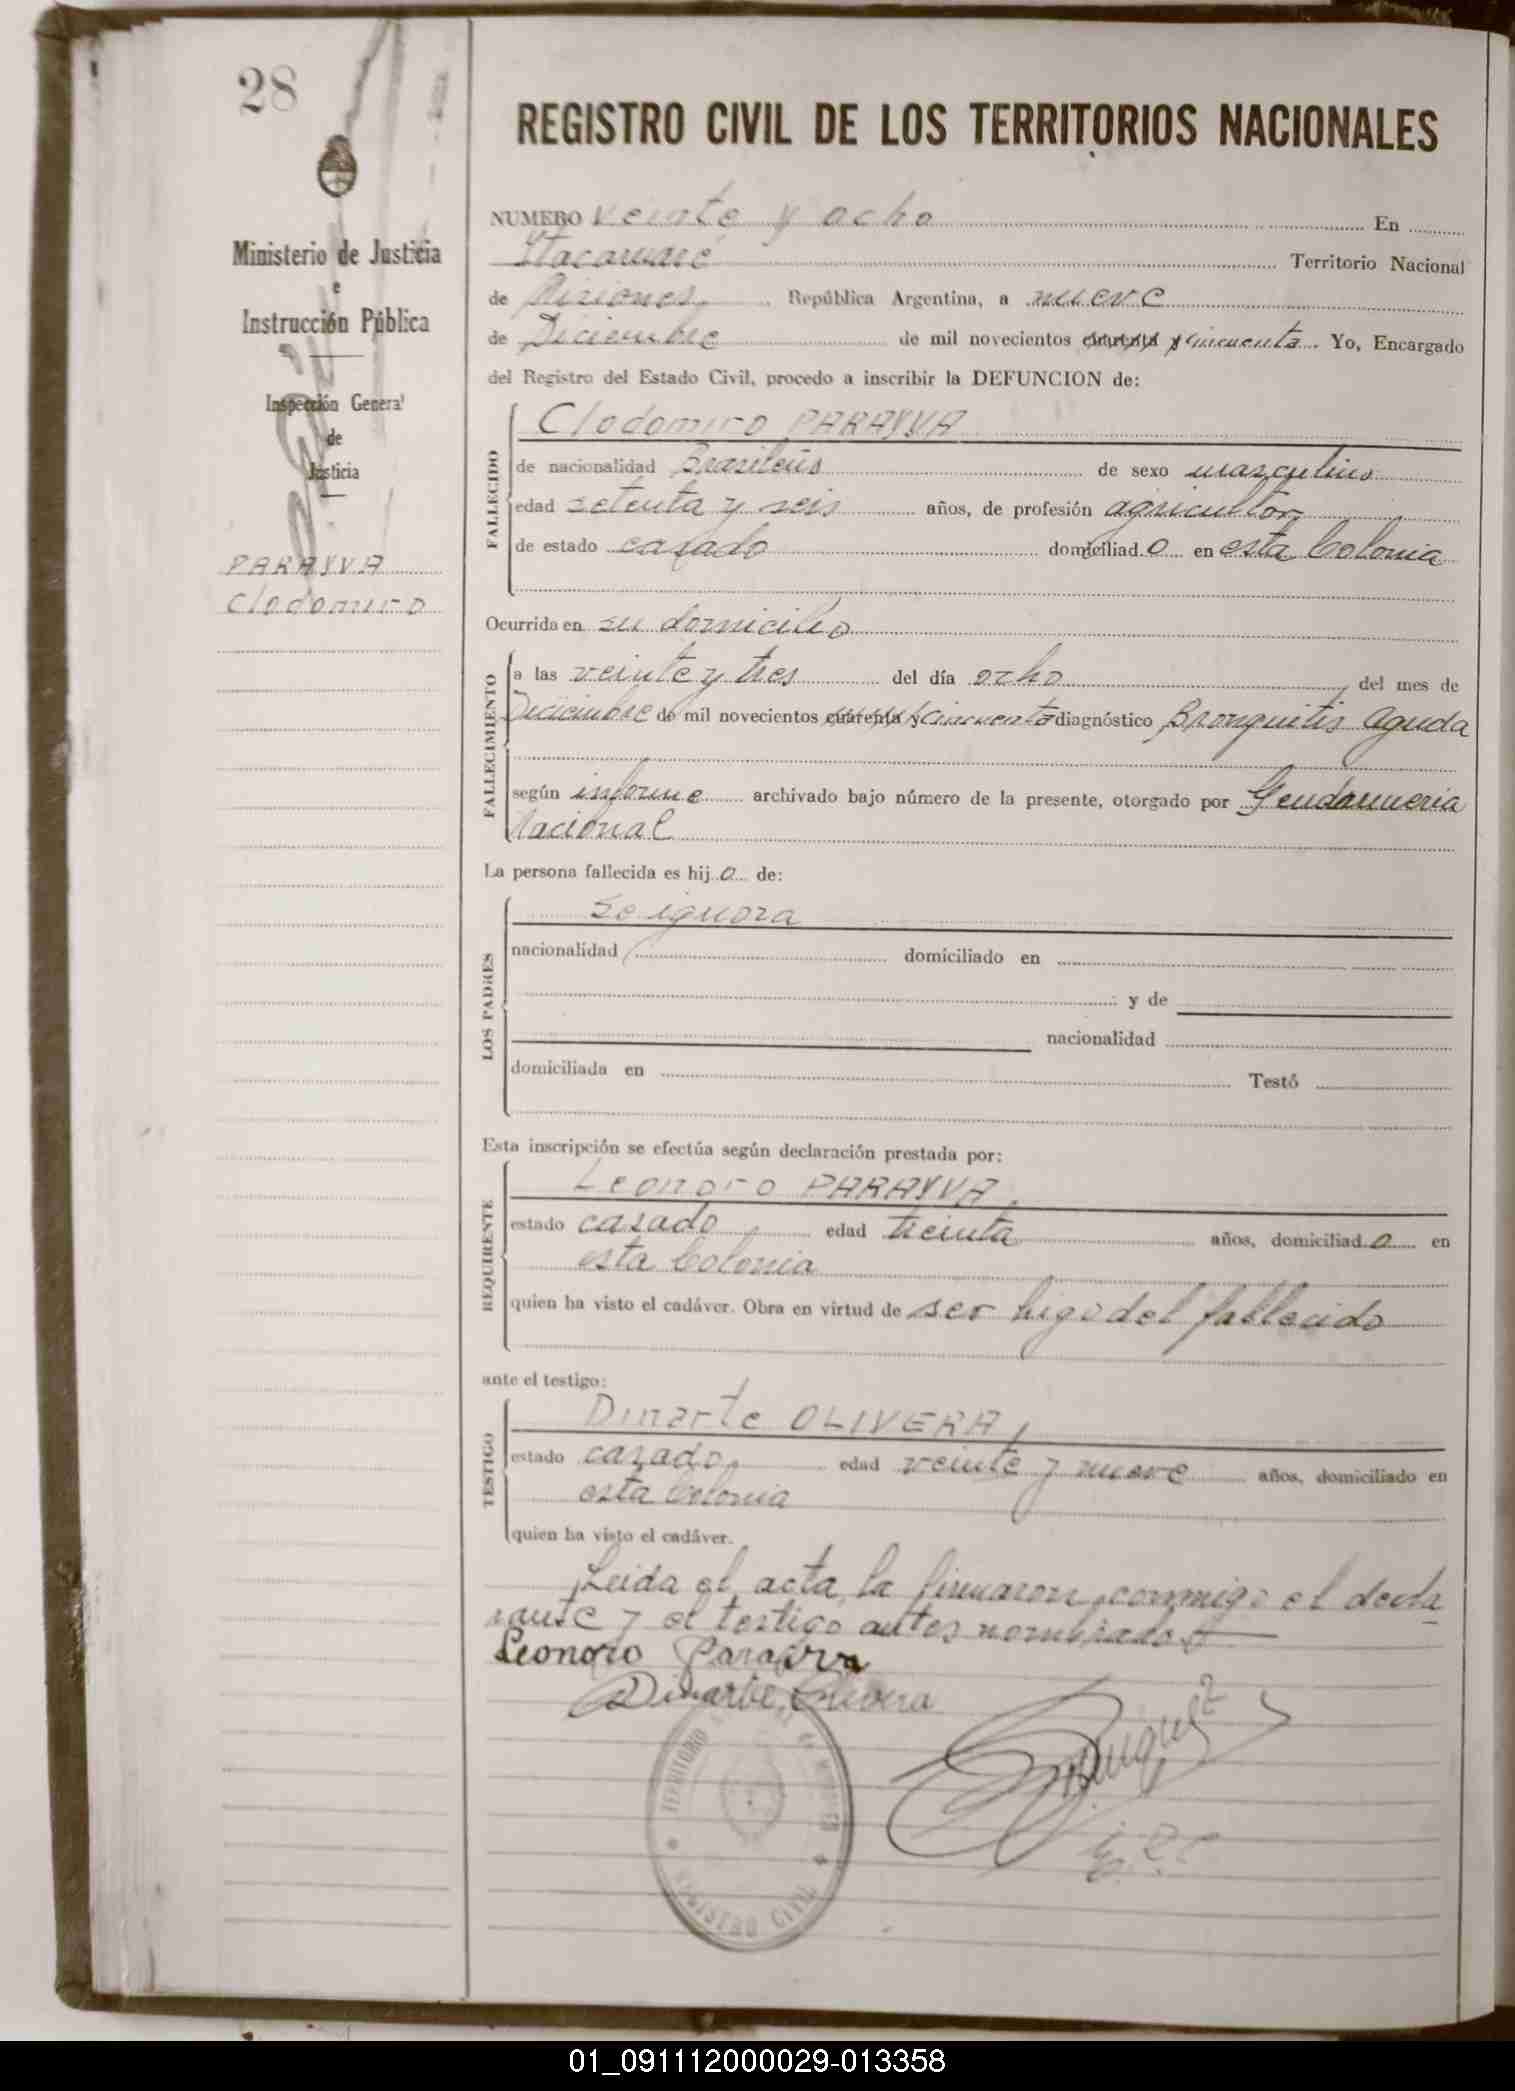 28
REGISTRO CIVIL DE LOS TERRITORIOS NACIONALES
Ministerio de Justicia
e
Instrucción Pública
Inspección General
de
Justicia
PARAYVA
Clodomiro
NUMERO veinte y ocho En
Itacaruaré Territorio Nacional
de Misiones, República Argentina, a nueve
de Diciembre de mil novecientos cuarenta y cincuenta. Yo, Encargado
del Registro del Estado Civil, procedo a inscribir la DEFUNCION de:
FALLECIDO
Clodomiro PARAYVA
de nacionalidad Brasileño de sexo masculino
edad setenta y seis años, de profesión agricultor
de estado casado domiciliad o en esta Colonia
Ocurrida en su domicilio
FALLECIMIENTO
a las veinte y tres del día ocho del mes de
Diciembre de mil novecientos cuarenta y cincuenta diagnóstico Bronquitis Aguda
según informe archivado bajo número de la presente, otorgado por Gendarmeria
Nacional
La persona fallecida es hij o de:
LOS PADRES
se ignora
nacionalidad domiciliado en
y de
nacionalidad
domiciliada en Testó
Esta inscripción se efectúa según declaración prestada por:
REQUIRENTE
Leonoro PARAYVA,
estado casado, edad treinta años, domiciliad o en
esta Colonia
quien ha visto el cadáver. Obra en virtud de ser higo del fallecido
ante el testigo:
TESTIGO
Dinarte OLIVERA,
estado casado, edad veinte y nueve años, domiciliado en
esta Colonia
quien ha visto el cadáver.
Leida el acta, la firmaron conmigo el decla
rante y el testigo antes nombrados
Leonoro Parayva
Dinarte Olivera
TERRITORIO DE MISIONES
REGISTRO CIVIL
01_091112000029-013358